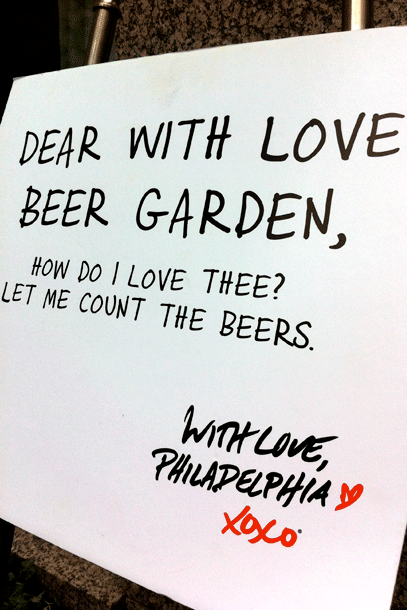 DEAR WITH LOVE
BEER GARDEN,
HOW DO I LOVE THEE?
LET ME COUNT THE BEERS.
WITH LOVE,
PHILADELPHIA
XOXO